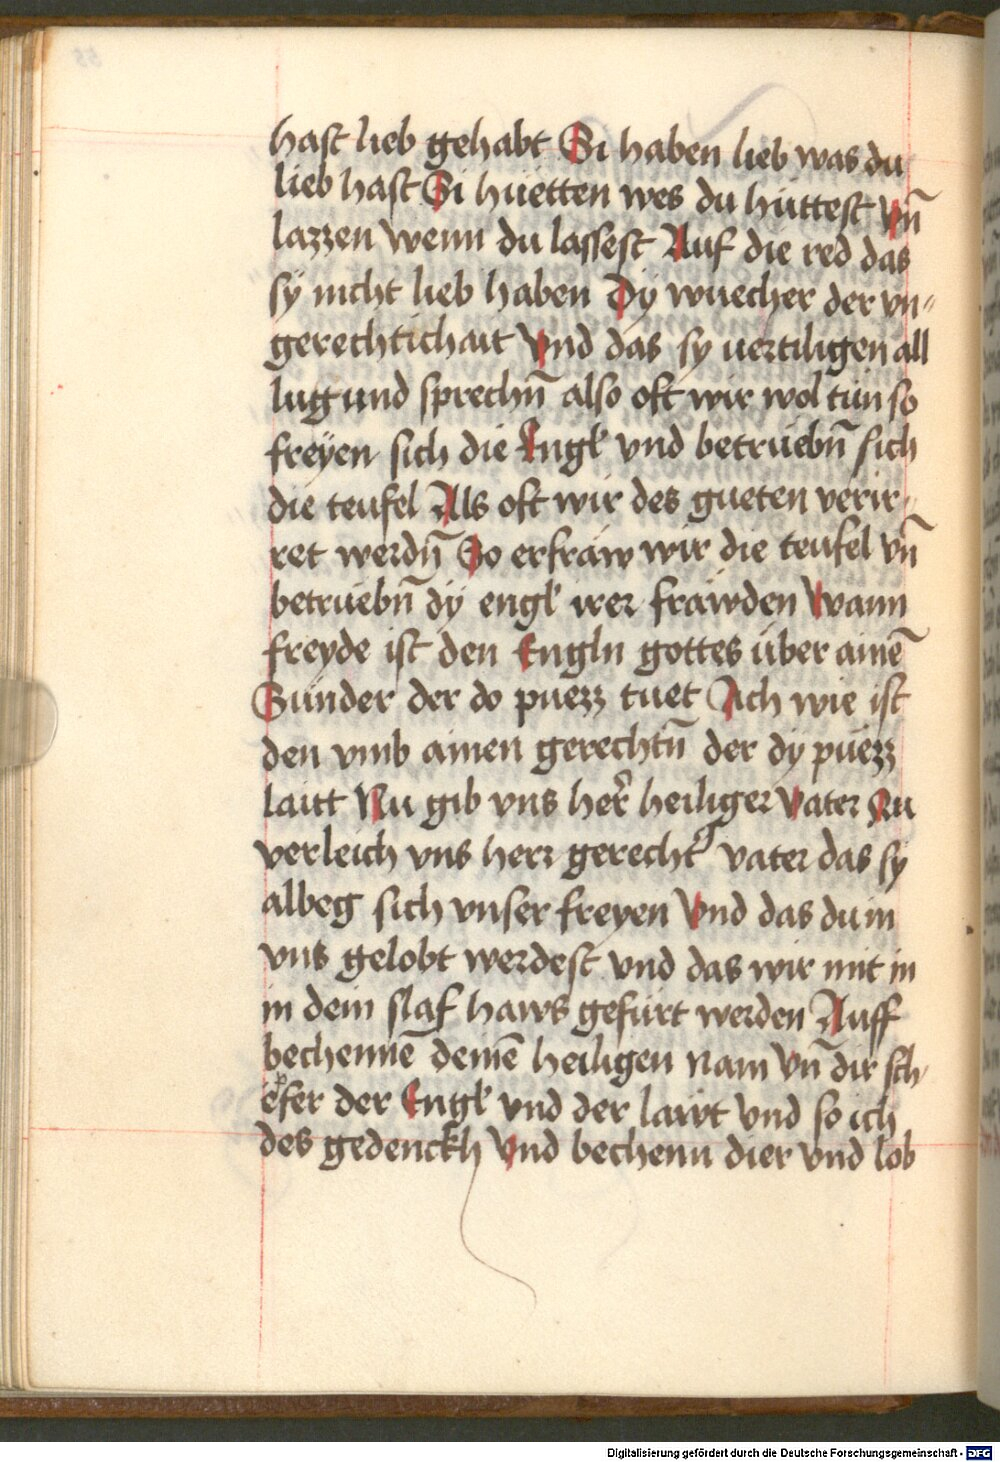 hast lieb gehabt Si haben lieb was du
lieb hast Si hüetten wes du hüttest vn̄
lazzen wenn du lassest Auf die red das
sÿ nicht lieb haben Dÿ wuecher der vn-
gerechtichait Vnd das sy uertiligen all
lug und sprechn̄ also oft wir wol tün so
freÿen sich die Engl vnd betrüebn̄ sich
die teufel Als oft wir des gueten verir-
ret werdn̄ So erfräw wir die teufel vn̄
betrüebn̄ dÿ engl irer fräwden Wann
freyde ist den Engln gottes über ainē
Sünder der do puezz tuet Ach wie ist
den vmb ainen gerechtn̄ der dy püezz
laitt Nu gib vns her̄ heiliger Vater Nu
verleich vns herr gerecht' vater das sy
albeg sich vnser freyen Vnd das du in
vns gelobt werdest vnd das wir mit in
in dein slaf haws gefürt werden Auff
bechennē deinē heiligen nam Vn̄ dir sch-
efer der Engl vnd der läwt Vnd so ich
des gedenckh Vnd bechenn dier vnd lob
Digitalisierung gefördert durch die Deutsche Forschungsgemeinschaft - DFG